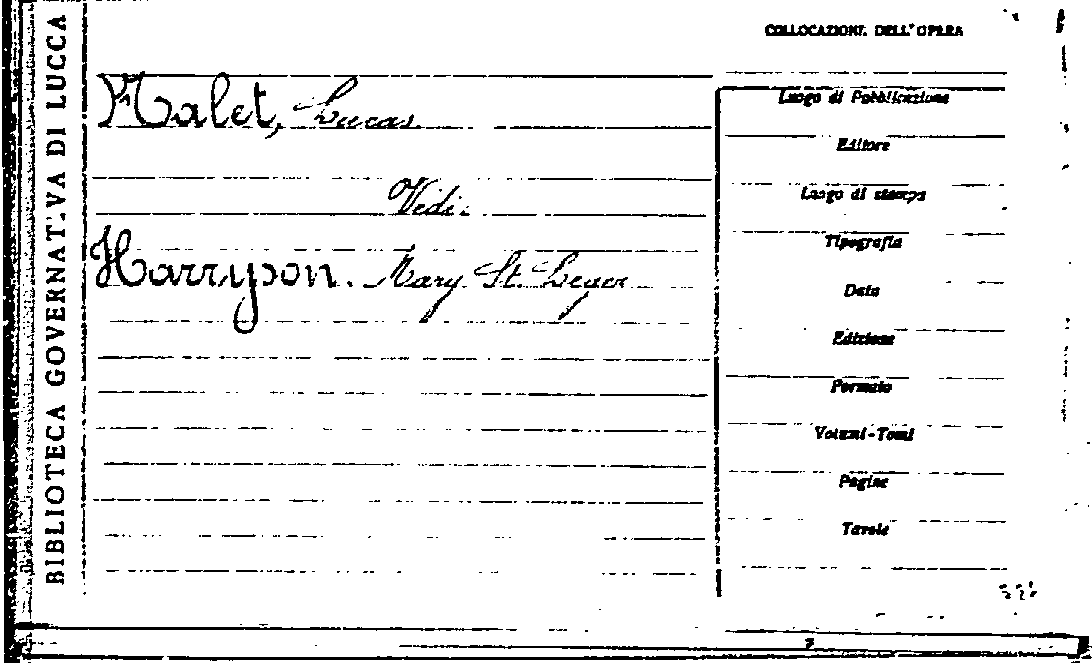 BIBLIOTECA GOVERNATIVA DI LUCCA
COLLOCAZIONE DELL'OPERA
Malet, Lucas.
Vedi.
Harryson. Mary St. Leger
Luogo di Pubblicazione
Editore
Luogo di stampa
Tipografia
Data
Edizione
Formato
Volumi-Tomi
Pagine
Tavole